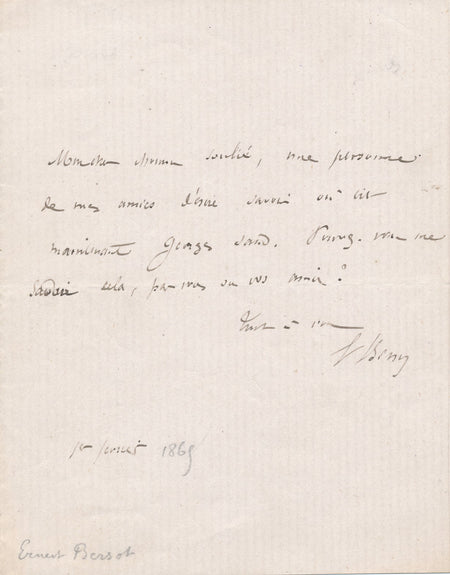 Mon cher Soulié, une personne
de mes amies désire savoir où est
maintenant Georges Sand. Pouvez-vous me
savoir cela, par vous ou vos amis ?
Tout à vous
E Bersot
1er 1865
Ernest Bersot